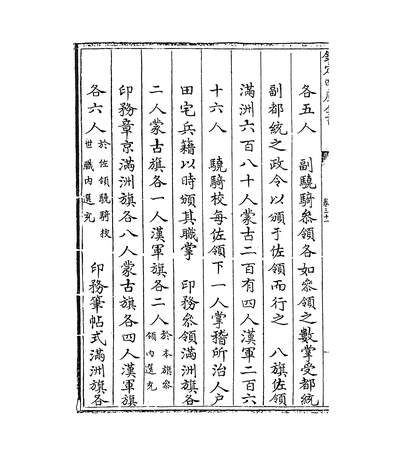 欽定四庫全書
卷三十一
各五人　副驍騎參領各如參領之數掌受都統
副都統之政令以頒于佐領而行之　八旗佐領
滿洲六百八十人蒙古二百有四人漢軍二百六
十六人　驍騎校每佐領下一人掌稽所治人户
田宅兵籍以時頒其職掌　印務參領滿洲旗各
二人蒙古旗各一人漢軍旗各二人於本旗參領内選充
印務章京滿洲旗各八人蒙古旗各四人漢軍旗
各六人於佐領驍騎校世職内選充　印務筆帖式滿洲旗各